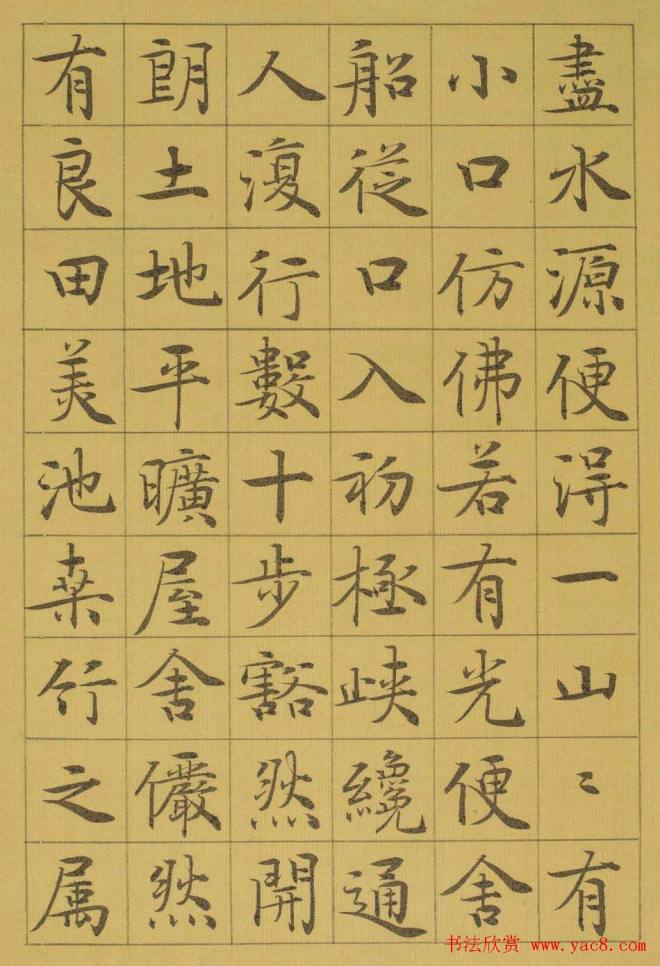 盡水源便得一山〻有
小口仿佛若有光便舍
船從口入初極峡纔通
人復行數十步豁然開
朗土地平曠屋舍儼然
有良田美池桑竹之属
书法欣赏 www.yac8.com